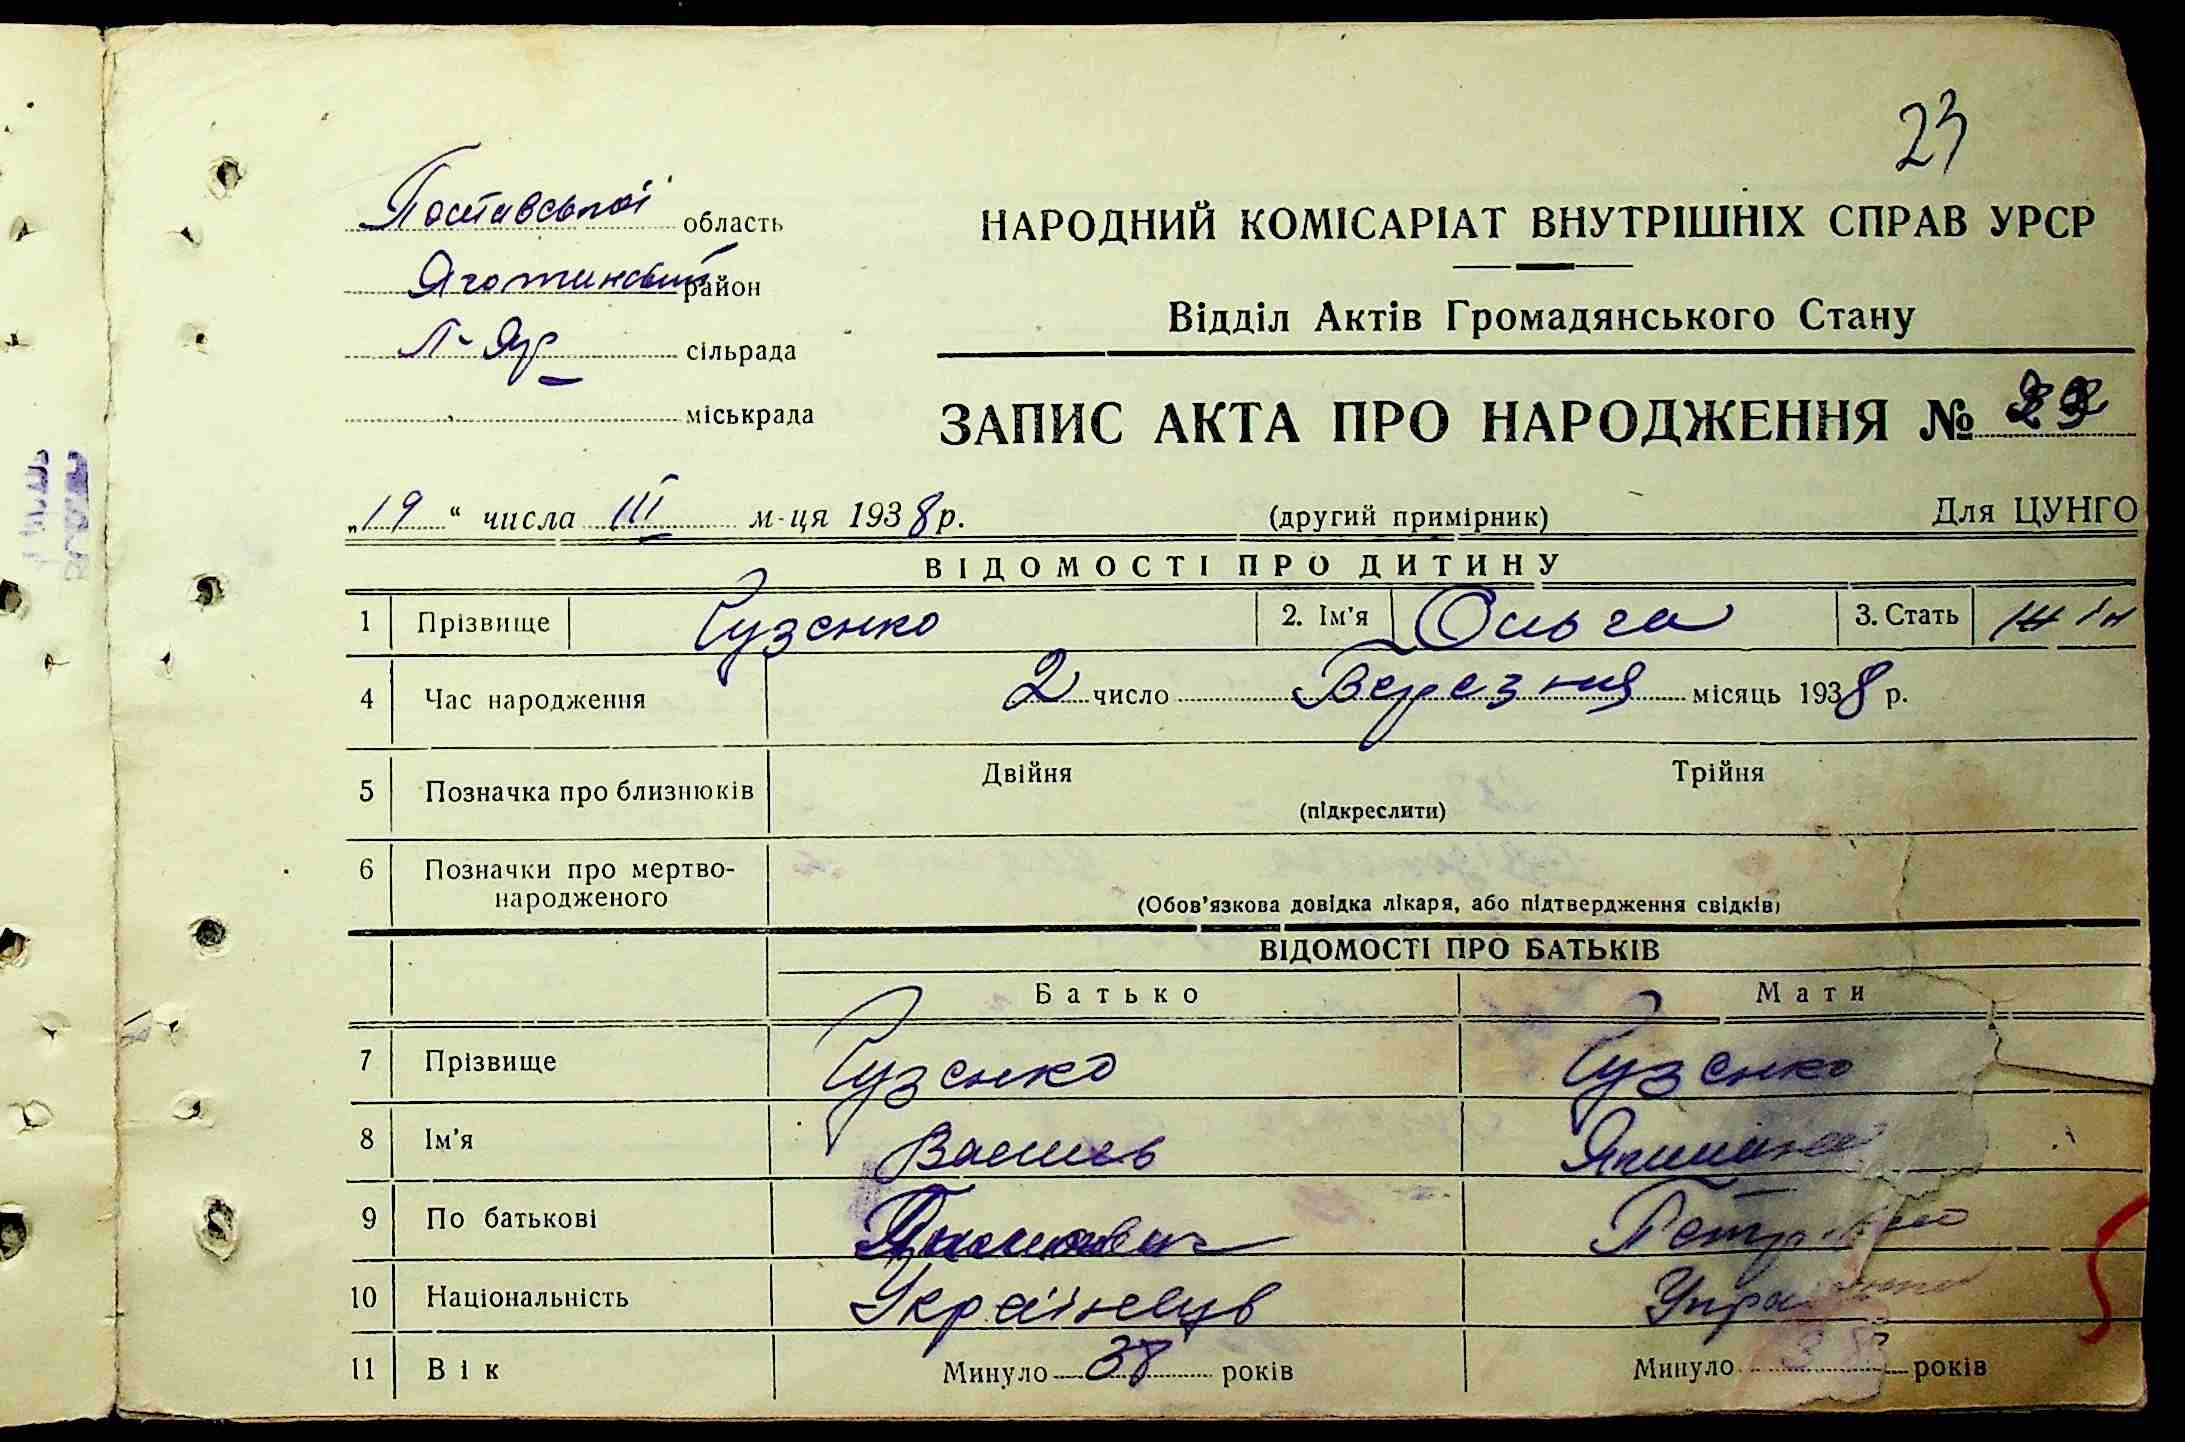 23
Полтавської область
Яготинський район
Л-Яр сільрада
міськрада
НАРОДНИЙ КОМІСАРІАТ ВНУТРІШНІХ СПРАВ УРСР
Відділ Актів Громадянського Стану
ЗАПИС АКТА ПРО НАРОДЖЕННЯ №
„19“ числа III м-ця 1938 р. (другий примірник) Для ЦУНГО
ВІДОМОСТІ ПРО ДИТИНУ
1 Прізвище Гузенко 2. Ім'я Ольга 3. Стать жін
4 Час народження 2 число Березня місяць 1938 р.
5 Позначка про близнюків Двійня Трійня
(підкреслити)
6 Позначки про мертво-
народженого
(Обов'язкова довідка лікаря, або підтвердження свідків)
ВІДОМОСТІ ПРО БАТЬКІВ
Батько Мати
7 Прізвище Гузенко Гузенко
8 Ім'я Василь
9 По батькові
10 Національність Українець
11 Вік Минуло 38 років Минуло років